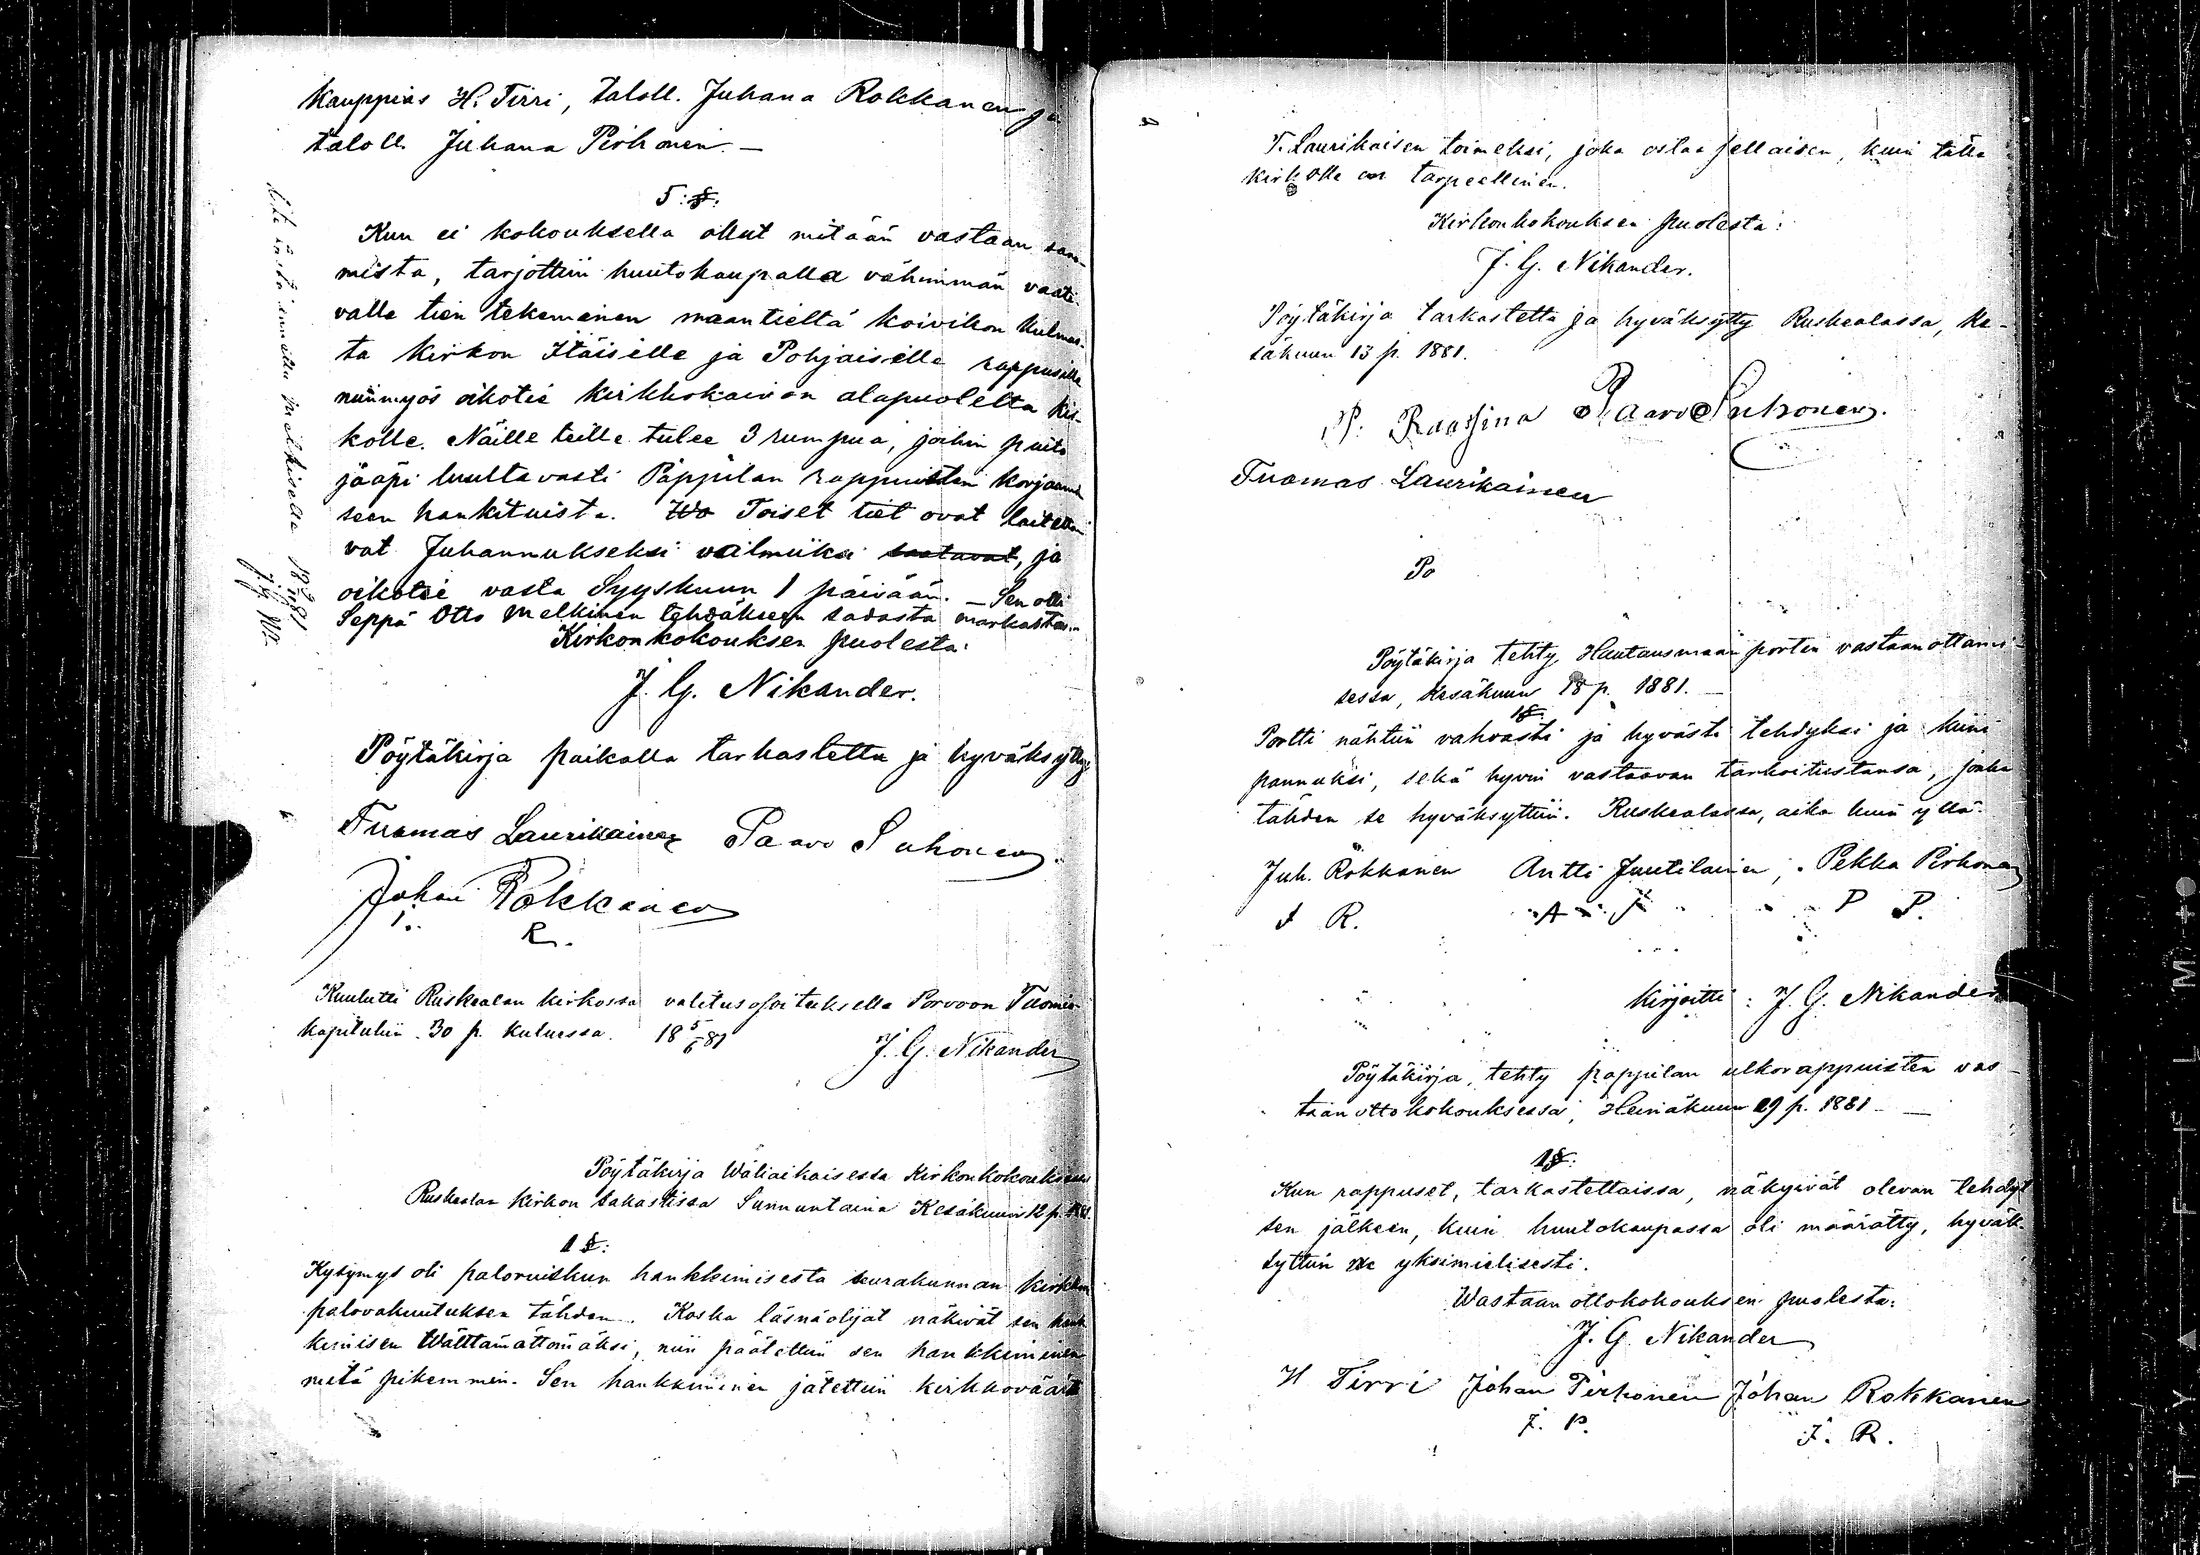 Kauppias H. Tirri, taloll. Juhana Rokkanen ja
taloll. Juhana Pirhonen. —
5:§.
Kun ei kokouksella ollut mitään vastaan sano-
mista, tarjottiin huutokaupalla vähimmän vaati-
valle tien tekeminen maantieltä koivikon kulmas-
ta kirkon Itäisille ja Pohjaisille rappusille
niinmyös oikotie kirkkokaivon alapuolelta kir-
kolle. Näille teille tulee 3 rumpua, joihin puita
jääpi luultavasti Pappilan rappuisten korjaami-
seen hankituista. Wo Toiset tiet ovat laitetta-
vat Juhannukseksi valmiiksi saatavat, ja
oikotie vasta Syyskuun 1 päivään. — Sen otti
Seppä Otto Melkinen tehdäkseen sadasta markasta.
Kirkonkokouksen puolesta:
J. G. Nikander.
Pöytäkirja paikalla tarkastettu ja hyväksytty
Tuomas Laurikainen Paavo Suhonen.
Johan Rokkanen
R.
Kuulutti Ruskealan kirkossa valitusosoituksella Porvoon Tuomio-
kapituliin 30 p. kuluessa. 18 5/6 81
J. G. Nikander
Pöytäkirja Wäliaikaisessa Kirkonkokouksessa
Ruskealan kirkon sakastissa Sunnuntaina Kesäkuun 12 p. 1881.
1 §:
Kysymys oli paloruiskun hankkimisesta seurakunnan kirkkon
palovakuutuksen tähden. Koska läsnäolijat näkivät sen hank-
kimisen Wälttämättömäksi, niin päätettiin sen hankkiminen
mitä pikemmin. Sen hankkiminen jätettiin kirkkoväärti
T. Laurikaisen toimeksi, joka ostaa sellaisen, kuin tälle
kirkolle on tarpeellinen.
Kirkonkokouksen puolesta:
J. G. Nikander.
Pöytäkirja tarkastettu ja hyväksytty Ruskealassa, Ke-
säkuun 13 p. 1881.
P. Raassina Paavo Suhonen.
Tuomas Laurikainen
Po
Pöytäkirja tehty Hautausmaan portin vastaanottami-
sessa, Kesäkuun 18 p. 1881. —
1§.
Portti nähtiin vahvasti ja hyvästi tehdyksi ja kiini
pannuksi, sekä hyvin vastaavan tarkoitustansa, jonka
tähden se hyväksyttiin. Ruskealassa, aika kuin yllä.
Juh. Rokkanen Antti Juutilainen, Pekka Pirhonen
J R. A J P P.
Kirjoitti: J. G. Nikander
Pöytäkirja, tehty pappilan ulkorappuisten vas-
taanottokokouksessa, Heinäkuun 29 p. 1881 —
1§:
Kun rappuset, tarkastettaissa, näkyivät olevan tehdyt
sen jälkeen, kuin huutokaupassa oli määrätty, hyväk-
syttiin ne yksimielisesti.
Wastaanottokokouksen puolesta:
J. G. Nikander
H Tirri Johan Pirhonen Johan Rokkanen
J. P. J. R.